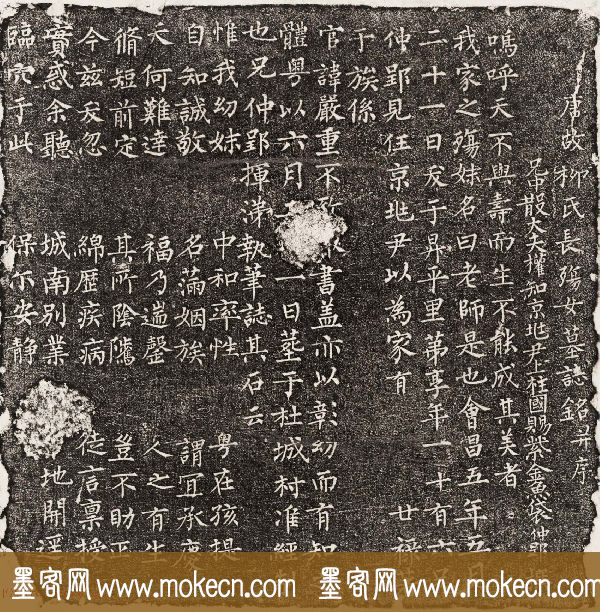 唐故柳氏長殤女墓誌銘并序
兄中散大夫權知京兆尹上柱國賜紫金魚袋仲郢
嗚呼天不與壽而生不能成其美者
我家之殤妹名曰老師是也會昌五年五月
二十一日夭于昇平里第享年一十有六
仲郢見任京兆尹以為家有
于族係
官諱嚴重不書蓋亦以彰幼而有知
體粵以六月一日葬于杜城村准經
也兄仲郢揮涕執筆誌其石云
惟我幼妹 中和率性 粵在孩提
自知誠敬 名滿姻族 謂宜承慶
天何難達 福乃遄罄 人之有生
脩短前定 其所陰騭 豈不助正
今茲夭忽 綿歷疾病 徒言稟授
實惑余聽 城南別業 地開
臨穴于此 保尔安静
墨客网 www.mokecn.com 墨客网 www.mokecn.com